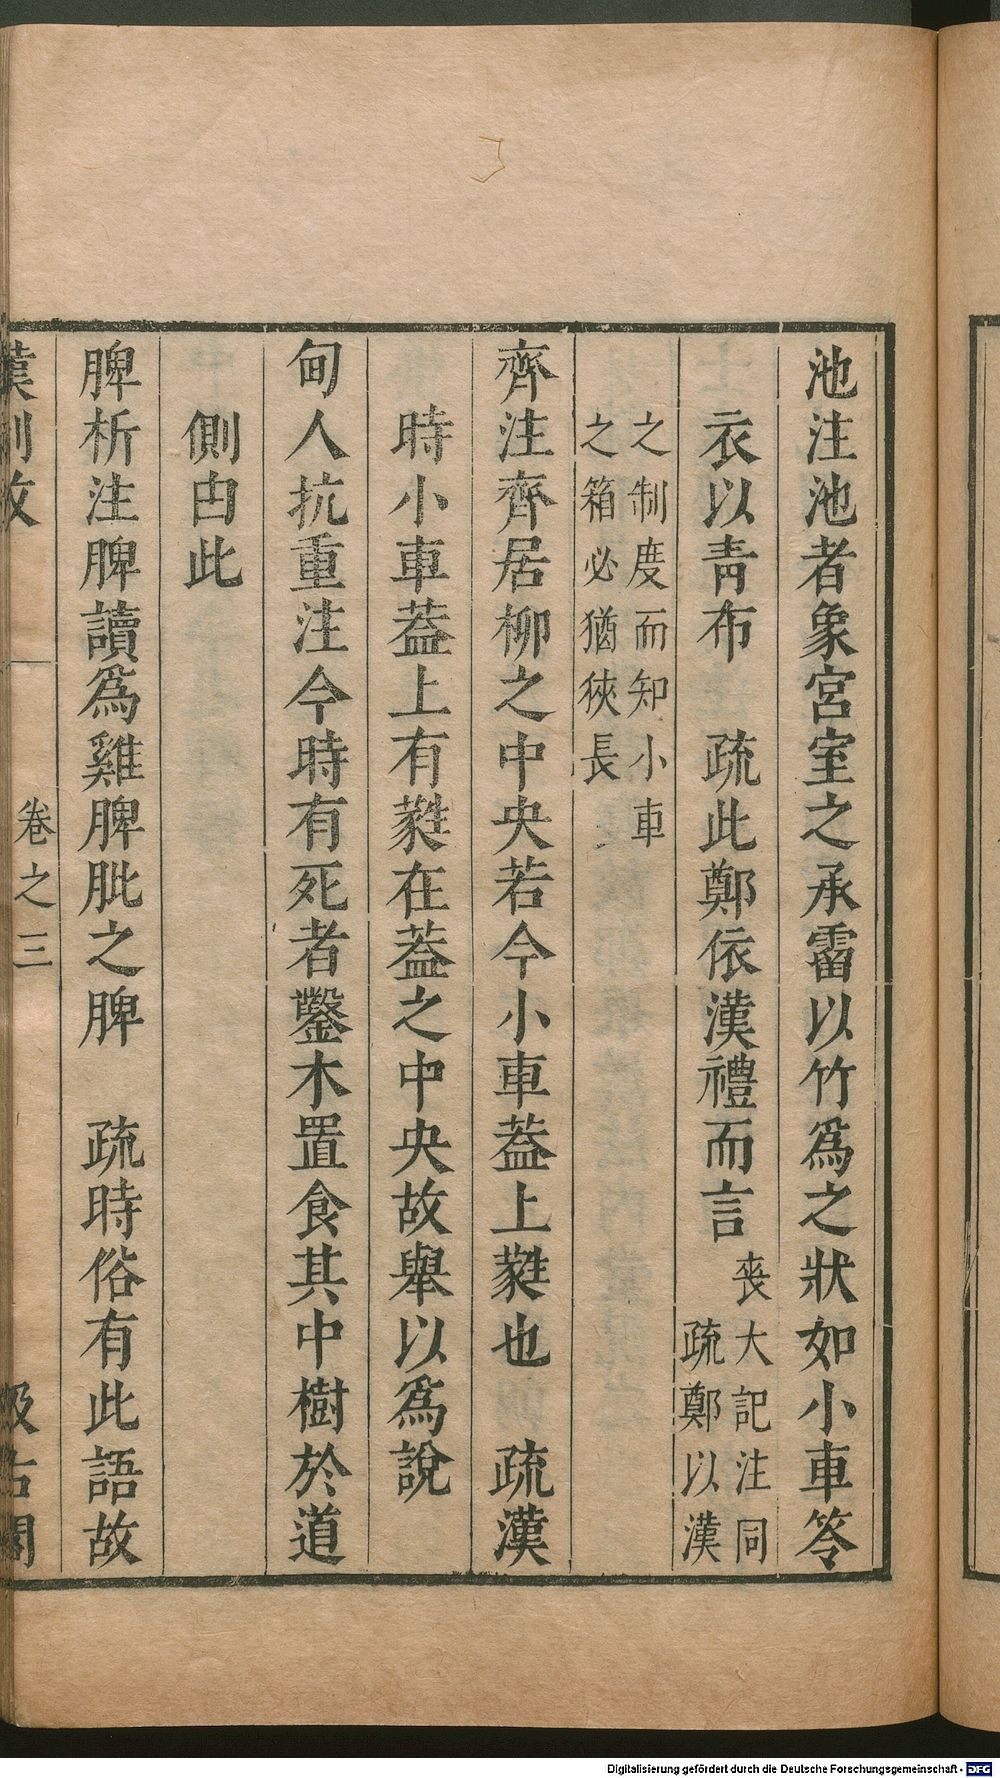 池注池者象宮室之承霤以竹爲之狀如小車笭
衣以青布　疏此鄭依漢禮而言
喪大記注同
疏鄭以漢
之制度而知小車
之箱必猶狹長
齊注齊居柳之中央若今小車蓋上蕤也　疏漢
時小車蓋上有蕤在蓋之中央故舉以爲說
甸人抗重注今時有死者鑿木置食其中樹於道
側由此
脾析注脾讀爲雞脾肶之脾　疏時俗有此語故
漢制攷　卷之三　汲古閣
Digitalisierung gefördert durch die Deutsche Forschungsgemeinschaft - DFG